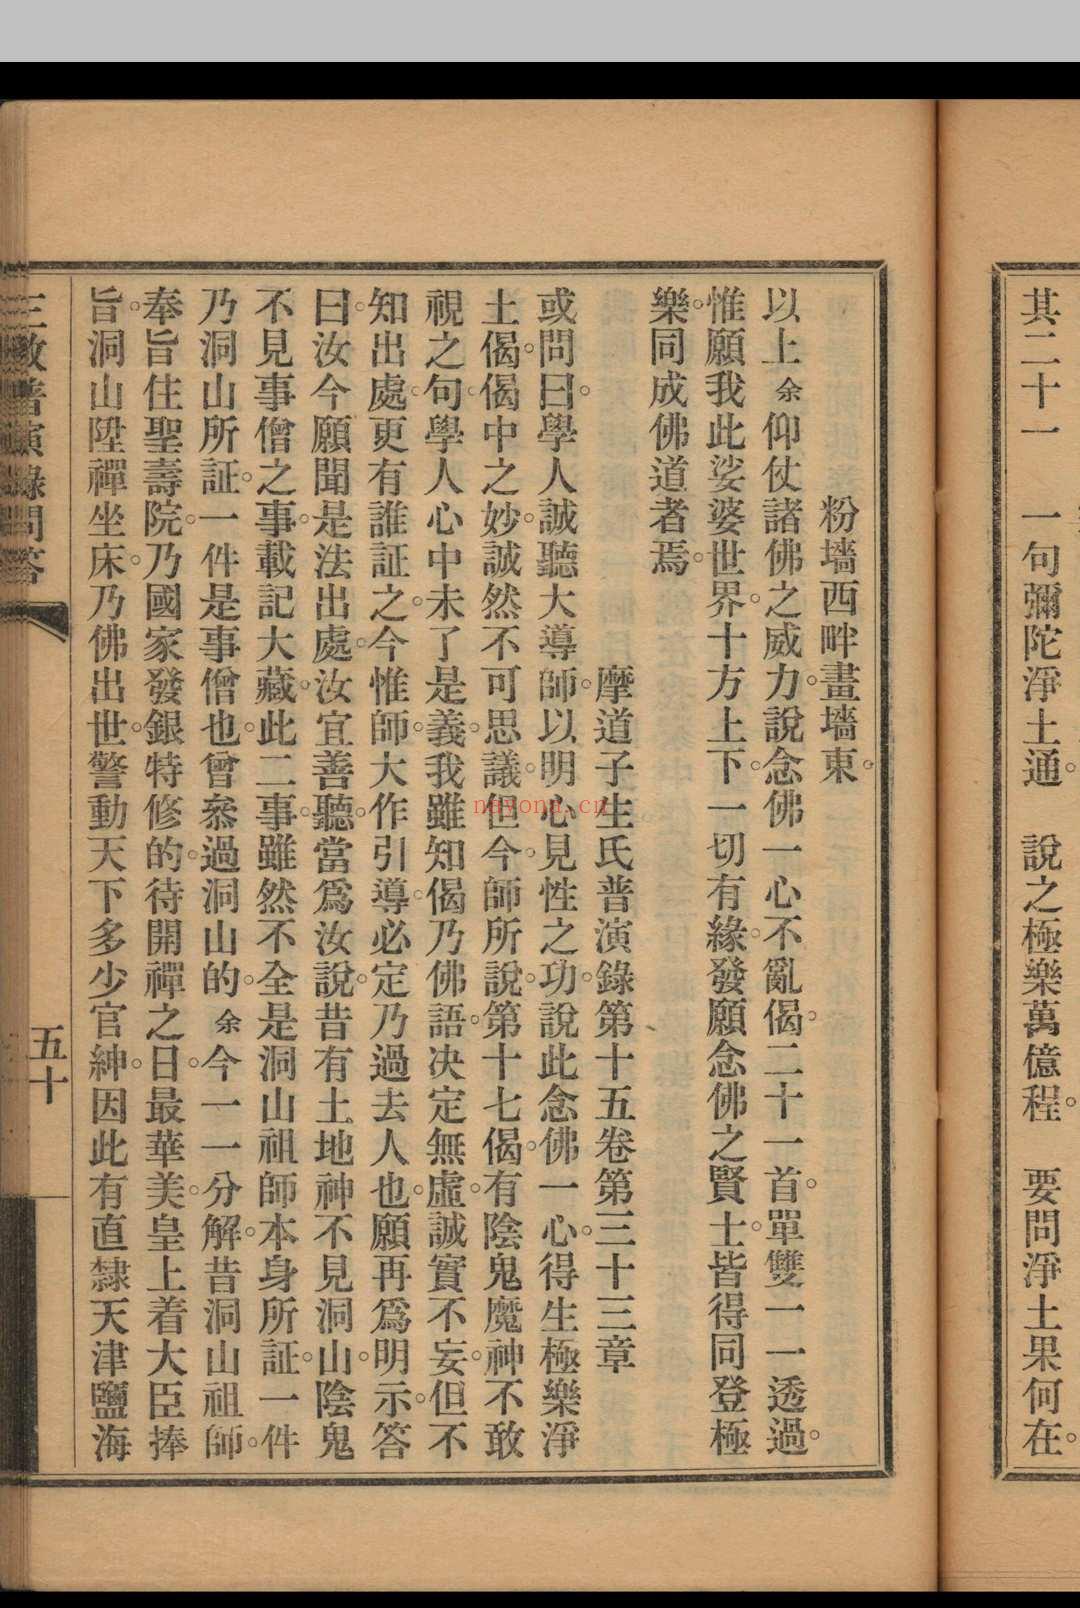 其二十一　一句彌陀淨土通。　說之極樂萬億程。　要問淨土果何在。
粉墻西畔畫墻東。
以上余仰仗諸佛之威力。說念佛一心不亂偈。二十一首。單雙一一透過。
惟願我此娑婆世界。十方上下。一切有緣。發願念佛之賢士。皆得同登極
樂。同成佛道者焉。
摩道子生氏普演錄第十五卷第三十三章
或問曰。學人誠聽大導師。以明心見性之功。說此念佛一心。得生極樂淨
土偈。偈中之妙。誠然不可思議。但今師所說。第十七偈。有陰鬼魔神不敢
視之句。學人心中未了是義。我雖知偈乃佛語。決定無虛。誠實不妄。但不
知出處。更有誰証之。今惟師。大作引導。必定乃過去人也。願再爲明示。答
曰。汝今願聞。是法出處。汝宜善聽。當爲汝說。昔有土地神不見洞山。陰鬼
不見事僧之事。載記大藏。此二事。雖然不全是洞山祖師。本身所証。一件
乃洞山所証。一件是事僧也。曾叅過洞山的。余今一一分解。昔洞山祖師。
奉旨住聖壽院。乃國家發銀特修的。待開禪之日。最華美。皇上着大臣捧
旨。洞山陞禪坐床。乃佛出世。警動天下多少官紳。因此有直隸天津鹽海
三教普演錄問答
五十
nayona.cn